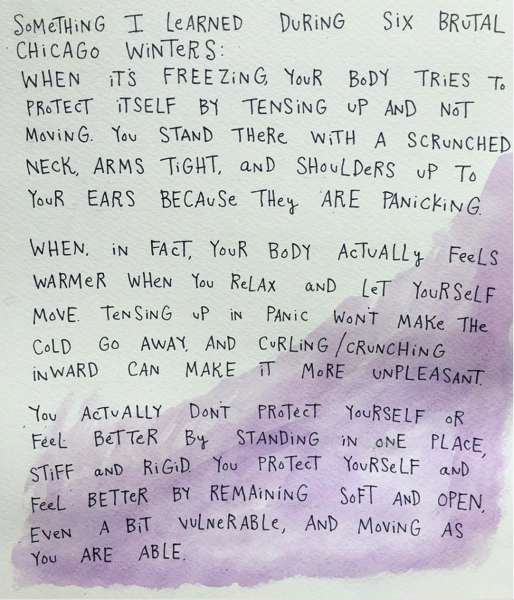 SOMETHING I LEARNED DURING SIX BRUTAL
CHICAGO WINTERS:
WHEN IT'S FREEZING, YOUR BODY TRIES TO
PROTECT ITSELF BY TENSING UP AND NOT
MOVING. YOU STAND THERE WITH A SCRUNCHED
NECK, ARMS TIGHT, AND SHOULDERS UP TO
YOUR EARS BECAUSE THEY ARE PANICKING.
WHEN, IN FACT, YOUR BODY ACTUALLY FEELS
WARMER WHEN YOU RELAX AND LET YOURSELF
MOVE. TENSING UP IN PANIC WON'T MAKE THE
COLD GO AWAY, AND CURLING/CRUNCHING
INWARD CAN MAKE IT MORE UNPLEASANT.
YOU ACTUALLY DON'T PROTECT YOURSELF OR
FEEL BETTER BY STANDING IN ONE PLACE,
STIFF AND RIGID. YOU PROTECT YOURSELF AND
FEEL BETTER BY REMAINING SOFT AND OPEN,
EVEN A BIT VULNERABLE, AND MOVING AS
YOU ARE ABLE.